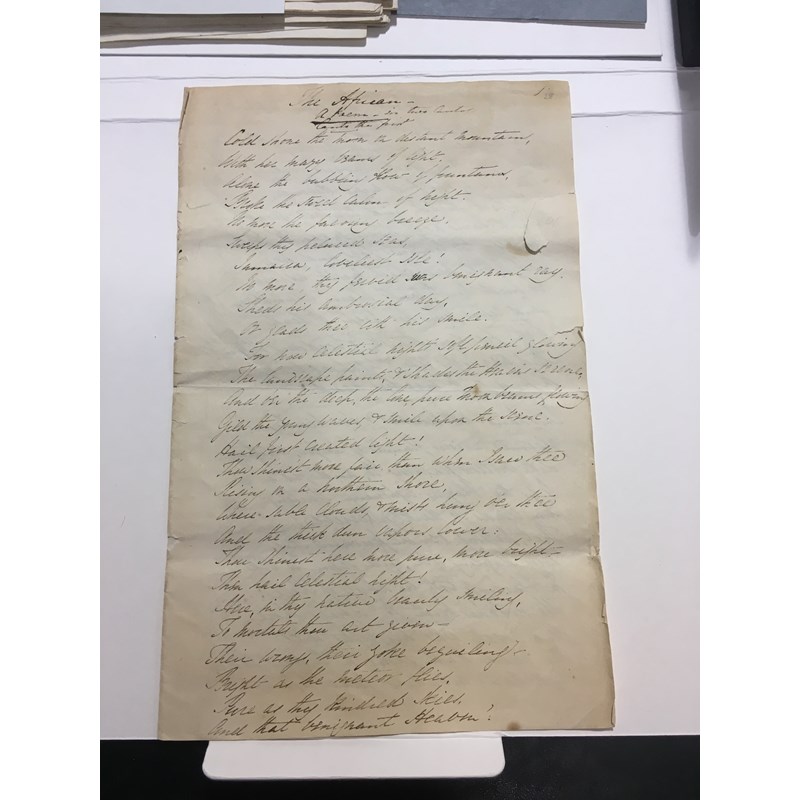 The African –
A Poem – in two Cantos
Canto the first
Cold shone the moon on distant mountain,
With her magic beams of light.
Along the bubbling flow of fountains,
the still calm of night.
No more the breeze
Sweeps thy seas,
Jamaica, loveliest Isle!
No more, thy fervid benignant ray
Sheds his ambrosial day,
Or glads thee with his smile.
For now Celestial night's soft pencil glowing
The landscape paints, & shades the Heavens serene,
And on the deep, the pure beams flowing
Gild the green waves, & smile upon the scene.
Hail first created light!
Thou shinest more fair, than when I saw thee
Rising on a northern shore,
Where sable clouds, & mists hung o'er thee
And the thick dun vapors lower:
Thou shinest here more pure, more bright –
Then hail Celestial light!
Here, in thy native beauty smiling,
To mortals thou art given –
Their wrongs, their yoke beguiling –
Bright as the meteor flies,
Pure as thy kindred skies,
And that benignant Heaven!